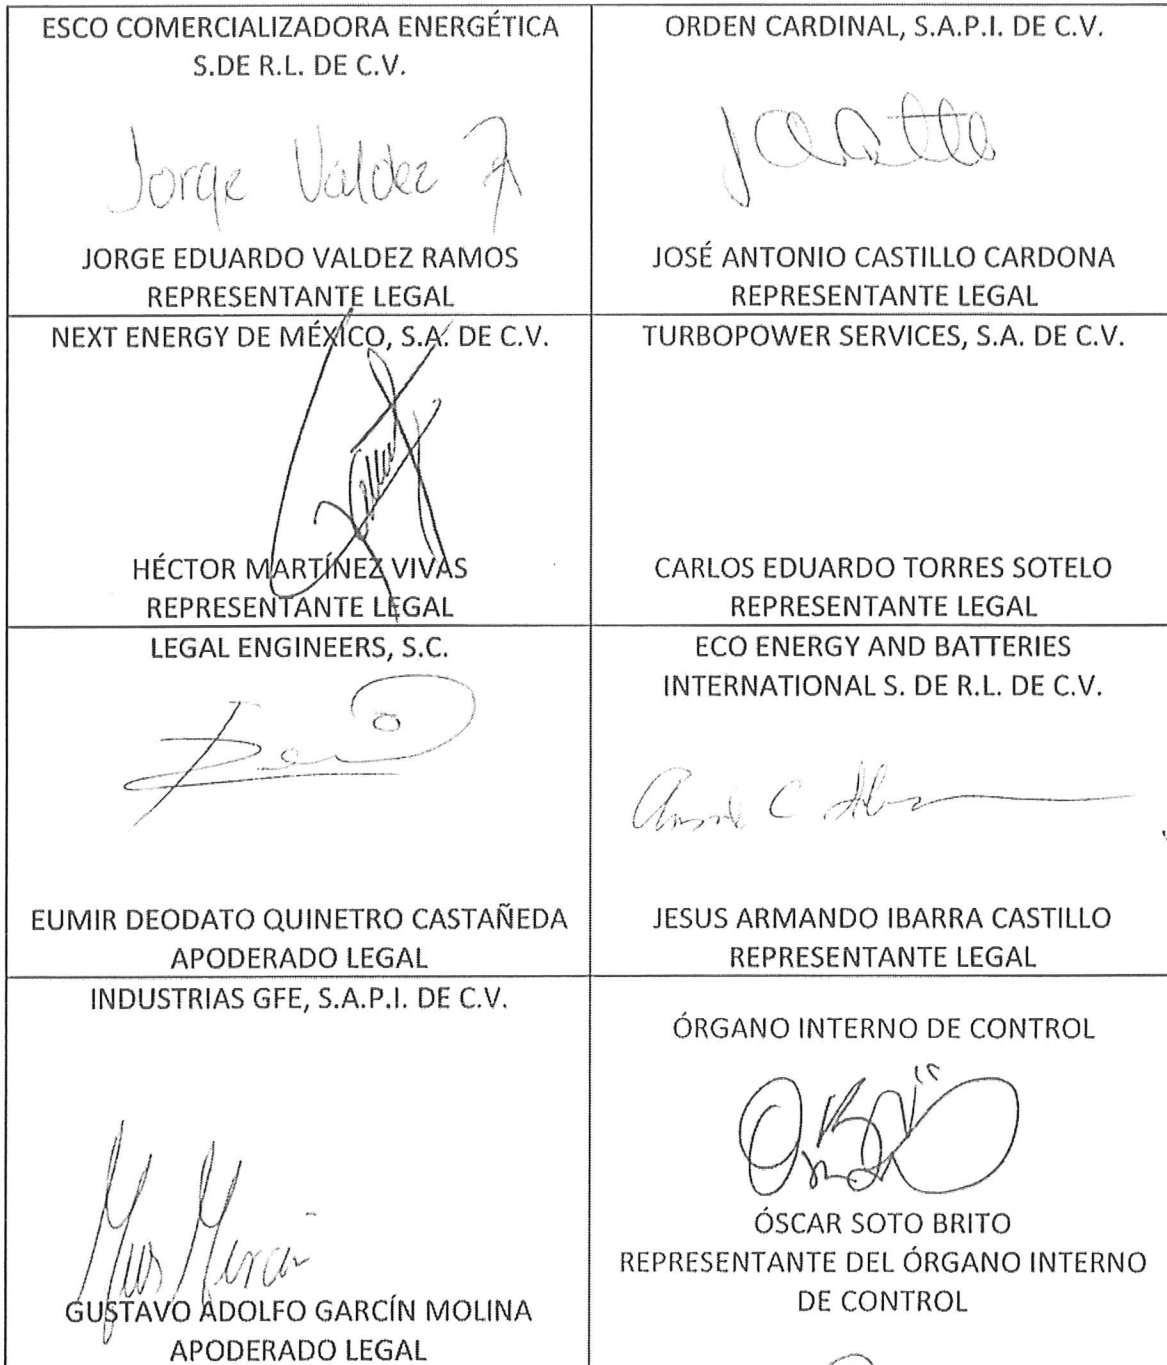 ESCO COMERCIALIZADORA ENERGÉTICA
S.DE R.L. DE C.V.
Jorge Valdez
JORGE EDUARDO VALDEZ RAMOS
REPRESENTANTE LEGAL
ORDEN CARDINAL, S.A.P.I. DE C.V.
JOSÉ ANTONIO CASTILLO CARDONA
REPRESENTANTE LEGAL
NEXT ENERGY DE MÉXICO, S.A. DE C.V.
HÉCTOR MARTÍNEZ VIVAS
REPRESENTANTE LEGAL
TURBOPOWER SERVICES, S.A. DE C.V.
CARLOS EDUARDO TORRES SOTELO
REPRESENTANTE LEGAL
LEGAL ENGINEERS, S.C.
EUMIR DEODATO QUINETRO CASTAÑEDA
APODERADO LEGAL
ECO ENERGY AND BATTERIES
INTERNATIONAL S. DE R.L. DE C.V.
JESUS ARMANDO IBARRA CASTILLO
REPRESENTANTE LEGAL
INDUSTRIAS GFE, S.A.P.I. DE C.V.
GUSTAVO ADOLFO GARCÍN MOLINA
APODERADO LEGAL
ÓRGANO INTERNO DE CONTROL
ÓSCAR SOTO BRITO
REPRESENTANTE DEL ÓRGANO INTERNO
DE CONTROL